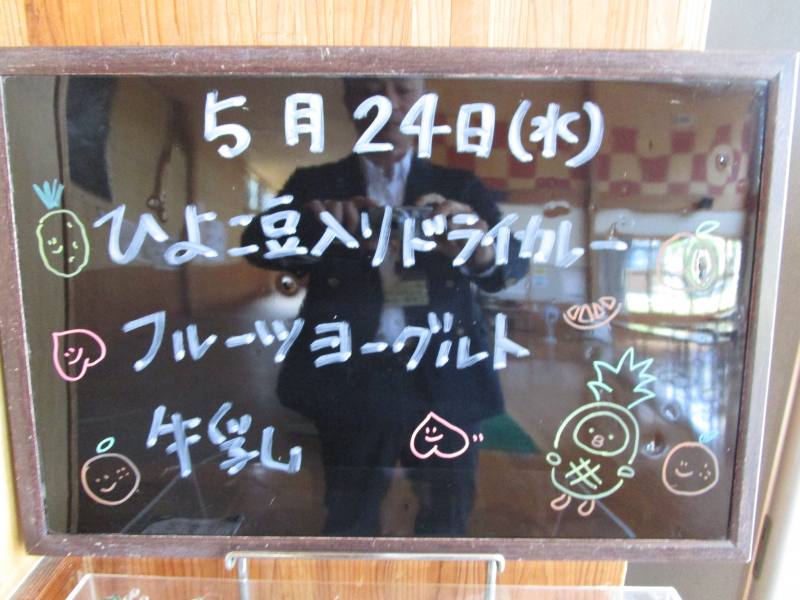 5月24日(水)
ひよこ豆入りドライカレー
フルーツヨーグルト
牛乳